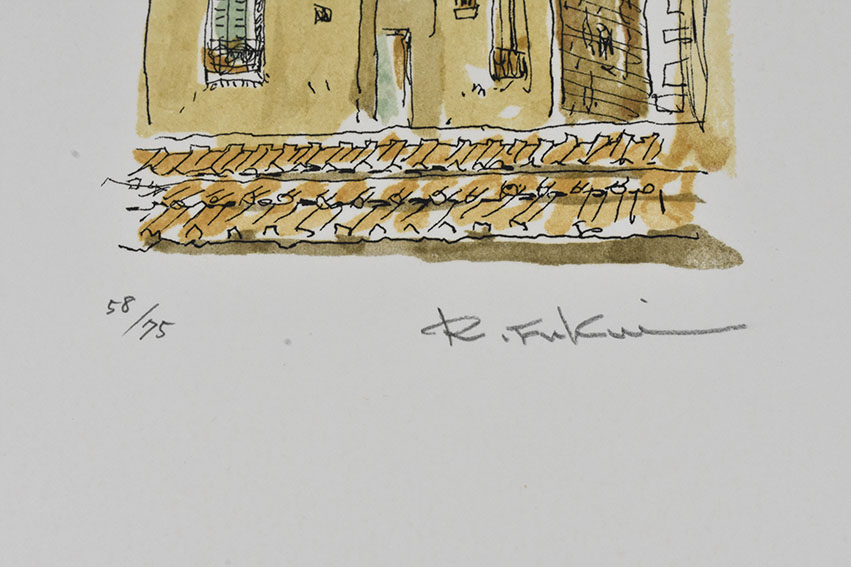 58/75
R. Fukui